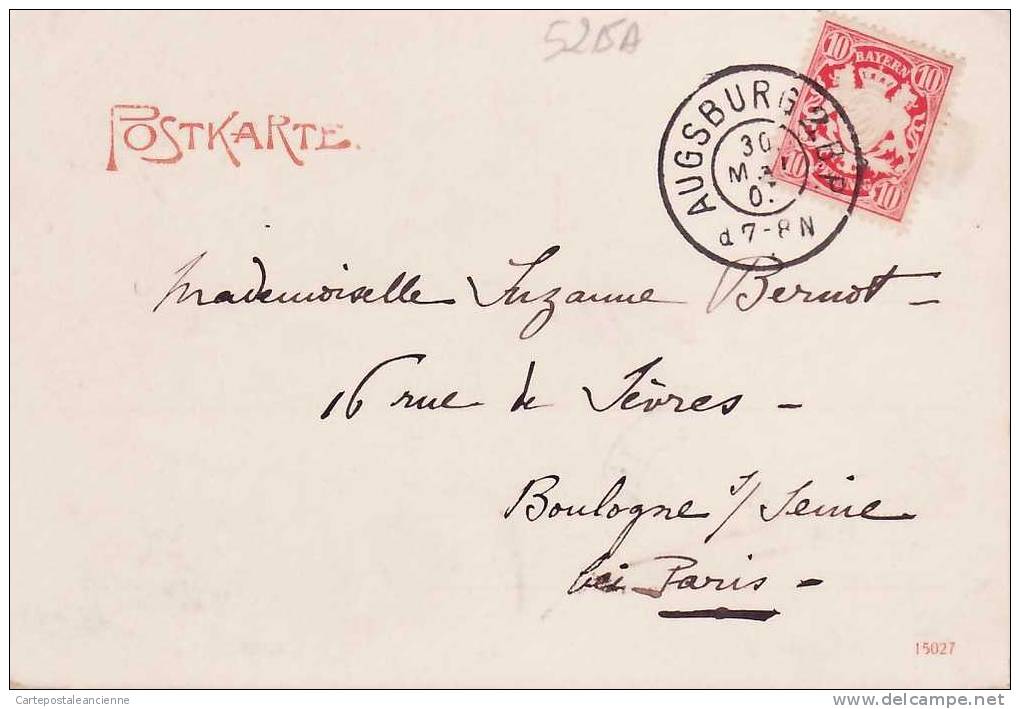 525A
POSTKARTE.
10 BAYERN 10
10 10
AUGSBURG 2. B.P.
30
MAI
0
d 7-8 N
Mademoiselle Suzanne Bernot -
16 rue de Sèvres -
Boulogne s/ Seine
bei Paris -
15027
Cartepostaleancienne
www.delcampe.net